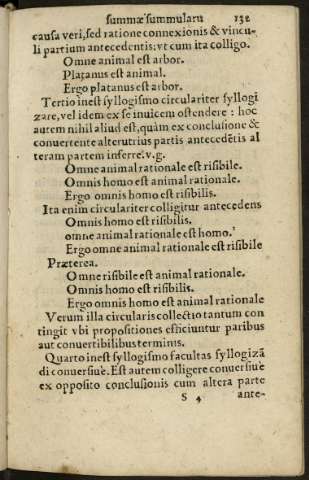 summæ summularū 132
causa veri, sed ratione connexionis & vincu-
li partium antecedentis: vt cum ita colligo.
Omne animal est arbor.
Platanus est animal.
Ergo platanus est arbor.
Tertio inest syllogismo circulariter syllogi
zare, vel idem ex se inuicem ostendere : hoc
autem nihil aliud est, quàm ex conclusione &
conuertente alterutrius partis antecedētis al
teram partem inferre. v.g.
Omne animal rationale est risibile.
Omnis homo est animal rationale.
Ergo omnis homo est risibilis.
Ita enim circulariter colligitur antecedens
Omnis homo est risibilis.
omne animal rationale est homo.
Ergo omne animal rationale est risibile
Præterea.
Omne risibile est animal rationale.
Omnis homo est risibilis.
Ergo omnis homo est animal rationale
Verum illa circularis collectio tantum con
tingit vbi propositiones efficiuntur paribus
aut conuertibilibus terminis.
Quarto inest syllogismo facultas syllogizā
di conuersiuè. Est autem colligere conuersiuè
ex opposito conclusionis cum altera parte
S 4 ante-